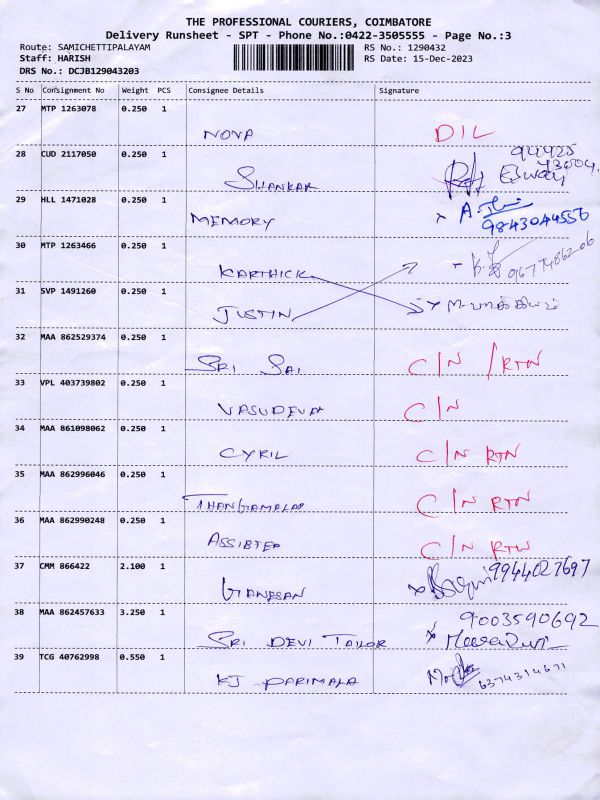 THE PROFESSIONAL COURIERS, COIMBATORE
Delivery Runsheet - SPT - Phone No.:0422-3505555 - Page No.:3
Route: SAMICHETTIPALAYAM RS No.: 1290432
Staff: HARISH RS Date: 15-Dec-2023
DRS No.: DCJB129043203
S No Consignment No Weight PCS Consignee Details Signature
27 MTP 1263078 0.250 1
NOVA D/L
28 CUD 2117050 0.250 1
SHANKAR
29 HLL 1471028 0.250 1
MEMORY 9843044556
30 MTP 1263466 0.250 1
KARTHICK
31 SVP 1491260 0.250 1
JUSTIN
32 MAA 862529374 0.250 1
SRI SAI C/N /RTN
33 VPL 403739802 0.250 1
VASUDEVAN C/N
34 MAA 861098062 0.250 1
CYRIL C/N RTN
35 MAA 862996046 0.250 1
THANGAMALAR C/N RTN
36 MAA 862990248 0.250 1
C/N RTN
37 CMM 866422 2.100 1
GANESAN 9944027697
38 MAA 862457633 3.250 1
9003590692
SRI DEVI TAILOR
39 TCG 40762998 0.550 1
KJ PARIMALA 6374314671